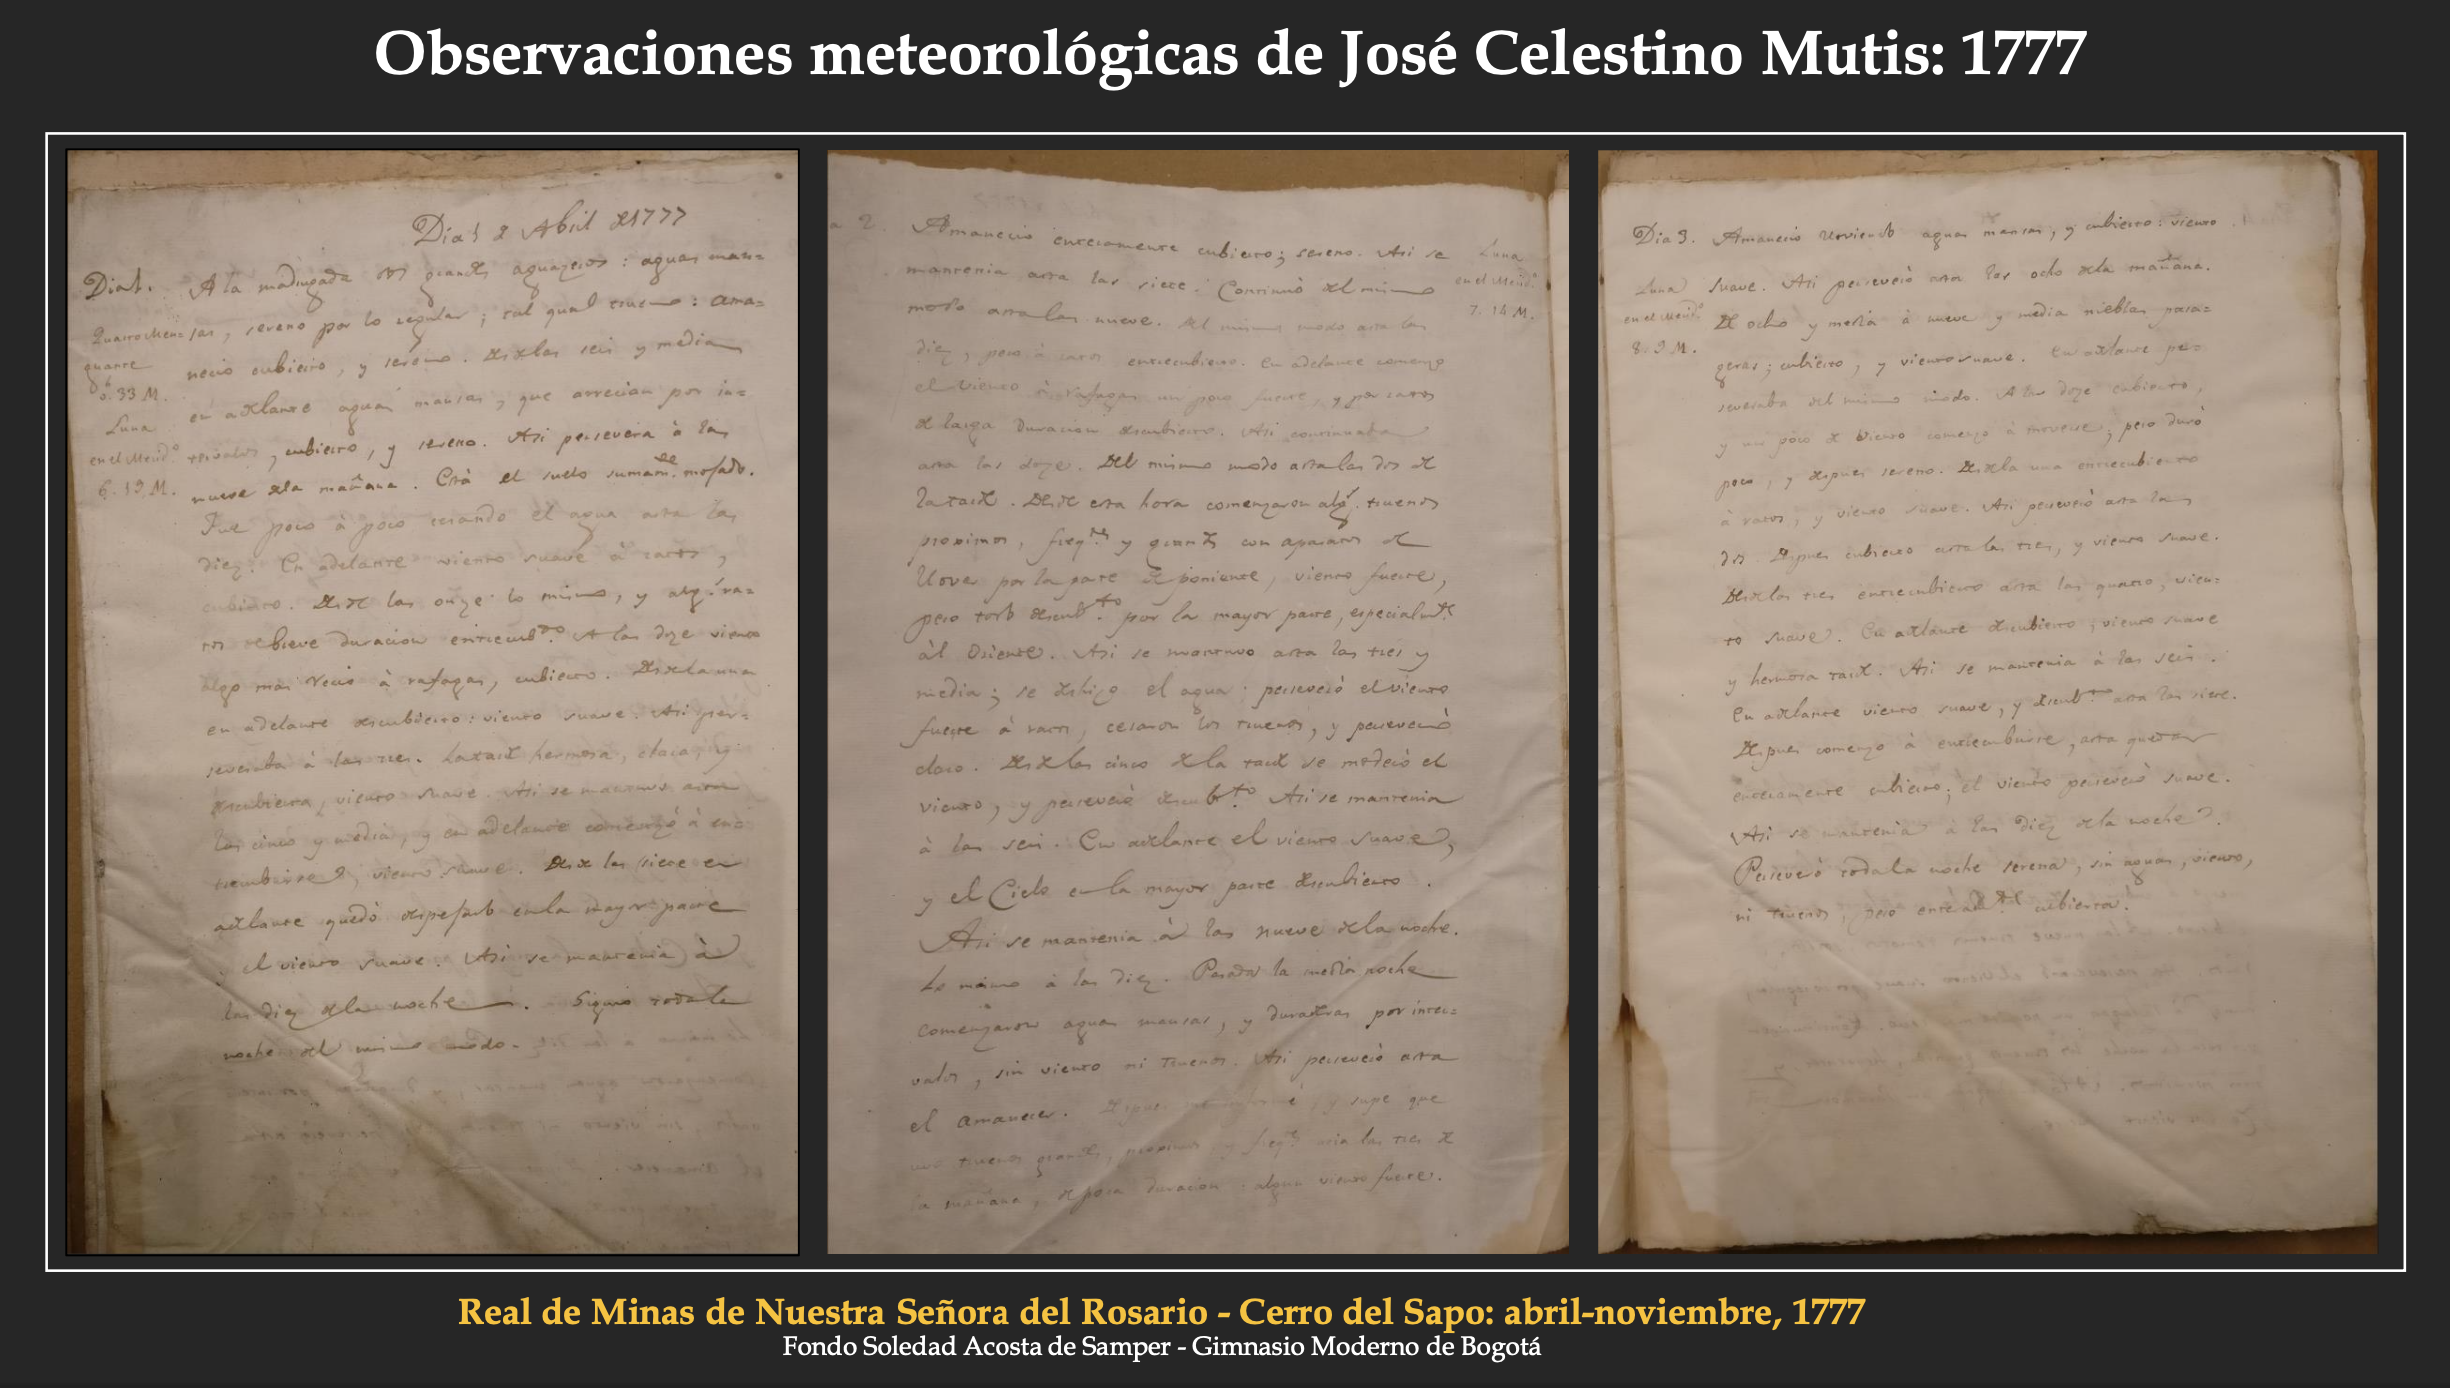 Observaciones meteorológicas de José Celestino Mutis: 1777
Dia 1 2 Abril de 1777
Dia 1.
Quarto Men=
guante
6. 33 M.
Luna
en el Merid.º
6. 19 M.
A la madrugada dos grandes aguazeros: aguas man=
sas, sereno por lo regular; tal qual trueno: ama=
necio cubierto, y sereno. Desde las seis y media
en adelante aguas mansas, que arrecian por in=
tervalos, cubierto, y sereno. Asi persevera à las
nueve dela mañana. Está el suelo sumam.te mojado.
Fue poco à poco cesando el agua asta las
diez. En adelante viento suave à ratos,
cubierto. Desde las onze lo mismo, y alg.s ra=
tos de breve duracion entrecub.to A las doze viento
algo mas recio à rafagas, cubierto. Desde la una
en adelante descubierto: viento suave. Asi per=
severaba à las tres. La tarde hermosa, clara, y
descubierta, viento suave. Asi se mantuvo asta
las cinco y media, y en adelante comenzó à en=
trecubrirse, viento suave. Desde las siete en
adelante quedò despejado en la mayor parte
y el viento suave. Asi se mantenia à
las diez dela noche. Siguio toda la
noche del mismo modo.
a 2.
Amanecio enteramente cubierto; sereno. Asi se
mantenia asta las siete. Continuò del mismo
modo asta las nueve. Del mismo modo asta las
diez, pero à ratos entrecubierto. En adelante comenzo
el viento à rafagas un poco fuerte, y por ratos
de larga duracion descubierto. Asi continuaba
asta las doze. Del mismo modo asta las dos de
la tarde. Desde esta hora comenzaron alg.s truenos
proximos, freq.tes y grandes con aparatos de
llover por la parte de poniente, viento fuerte,
pero todo descub.to por la mayor parte, especialm.te
àl Oriente. Asi se mantuvo asta las tres y
media; se deshizo el agua: perseverò el viento
fuerte à ratos, cesaron los truenos, y perseverò
claro. Desde las cinco de la tarde se moderò el
viento, y perseverò descub.to Asi se mantenia
à las seis. En adelante el viento suave,
y el Cielo en la mayor parte descubierto.
Asi se mantenia à las nueve dela noche.
Lo mismo à las diez. Pasada la media noche
comenzaron aguas mansas, y duraderas por inter=
valos, sin viento ni truenos. Asi perseverò asta
el amanecer. Despues me informé, y supe que
uvo truenos grandes, proximos, y freq.tes acia las tres de
la mañana, de poca duracion: algun viento fuerte.
Luna
en el Merid.º
7. 14 M.
Dia 3.
Luna
en el Merid.º
8. 9 M.
Amanecio lloviendo aguas mansas, y cubierto: viento
suave. Asi perseverò asta las ocho dela mañana.
De ocho y media à nueve y media nieblas pasa=
geras; cubierto, y viento suave. En adelante per=
severaba del mismo modo. A las doze cubierto,
y un poco de viento comenzo à moverse; pero durò
poco, y despues sereno. Desde la una entrecubierto
à ratos, y viento suave. Asi perseverò asta las
dos. Despues cubierto asta las tres, y viento suave.
Desde las tres entrecubierto asta las quatro, vien=
to suave. En adelante descubierto, viento suave
y hermosa tarde. Asi se mantenia à las seis.
En adelante viento suave, y descub.to asta las siete.
Despues comenzo à entrecubrirse, asta quedar
enteramente cubierto; el viento perseverò suave.
Asi se mantenia à las diez dela noche.
Perseverò toda la noche serena, sin aguas, viento,
ni truenos, pero cubierta.
Real de Minas de Nuestra Señora del Rosario - Cerro del Sapo: abril-noviembre, 1777
Fondo Soledad Acosta de Samper - Gimnasio Moderno de Bogotá